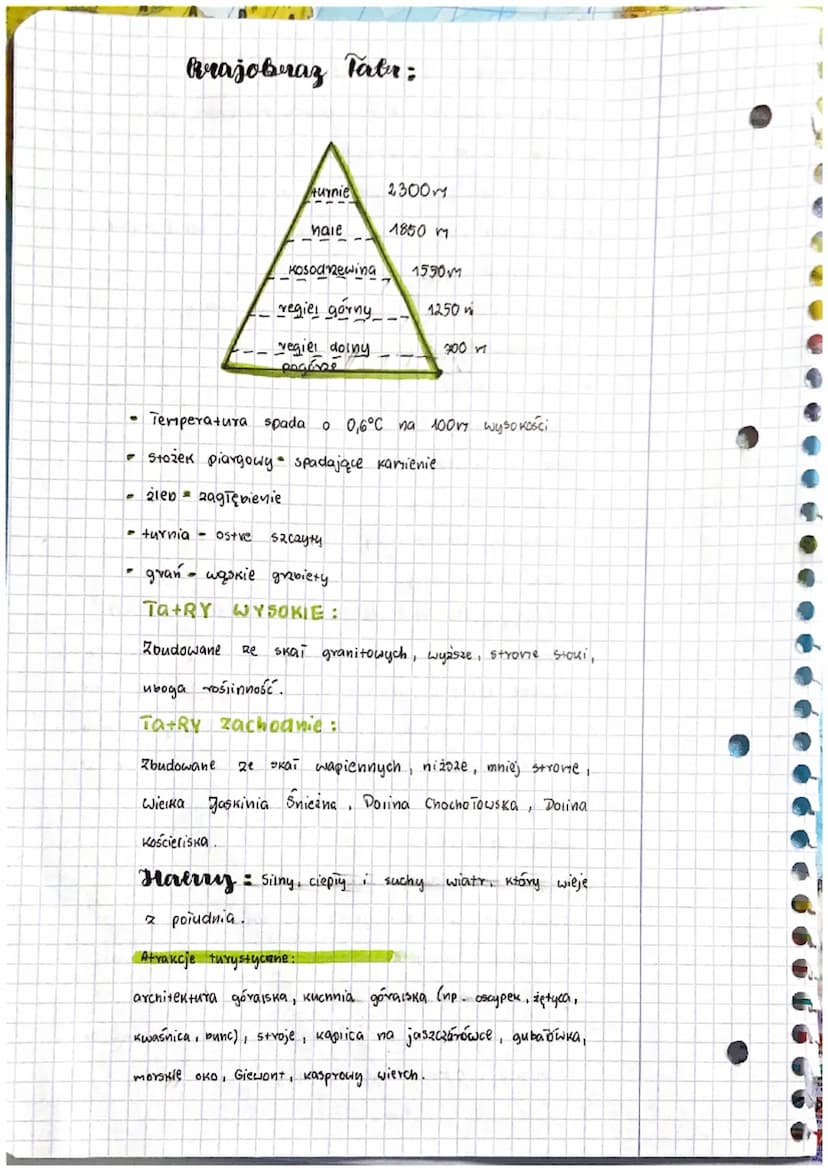 Krajobraz Tatr:
turnie 2300m
hale 1850 m
kosodrzewina 1550m
regiel górny 1250 m
regiel dolny 700 m
pogórze
• Temperatura spada o 0,6°C na 100m wysokości
• stożek piargowy - spadające kamienie
• żleb - zagłębienie
• turnia - ostre szczyty
• grań - wąskie grzbiety
TatRY WYSOKIE:
Zbudowane ze skał granitowych, wyższe, strome stoki,
uboga roślinność.
TatRY Zachodnie:
Zbudowane ze skał wapiennych, niższe, mniej strome,
Wielka Jaskinia Śnieżna, Dolina Chochołowska, Dolina
Kościeliska.
Halny: Silny, ciepły i suchy wiatr, który wieje
z południa.
Atrakcje turystyczne:
architektura góralska, kuchnia góralska (np. oscypek, żętyca,
kwaśnica, bunc), stroje, kaplica na jaszczórówce, gubałówka,
morskie oko, Giewont, kasprowy wierch.